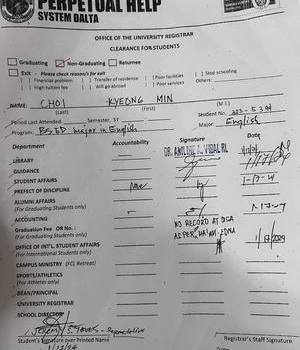 PERPETUAL HELP
SYSTEM DALTA
OFFICE OF THE UNIVERSITY REGISTRAR
CLEARANCE FOR STUDENTS
Graduating Non-Graduating Returnee
Exit - Please check reason/s for exit
Financial problem Transfer of residence Poor facilities Stop schooling
High tuition fee Will go abroad Poor services Others:
NAME: CHOI KYEONG MIN
(Last) (First) (M.I.)
Period Last Attended Semester, SY Student No.
Program: BSED Major in English Major: English
Department Accountability Signature Date
LIBRARY
GUIDANCE
STUDENT AFFAIRS
PREFECT OF DISCIPLINE
ALUMNI AFFAIRS
(For Graduating Students only)
ACCOUNTING
Graduation Fee OR No.:
(For Graduating Students only)
NO RECORD AT OSA
OFFICE OF INT'L. STUDENT AFFAIRS AS PER MA'AM 1/17/2024
(For International Students only)
CAMPUS MINISTRY (FCL Retreat)
SPORTS/ATHLETICS
(For Athletes only)
DEAN/PRINCIPAL
UNIVERSITY REGISTRAR
SCHOOL DIRECTOR
Student's Signature over Printed Name Registrar's Staff Signature